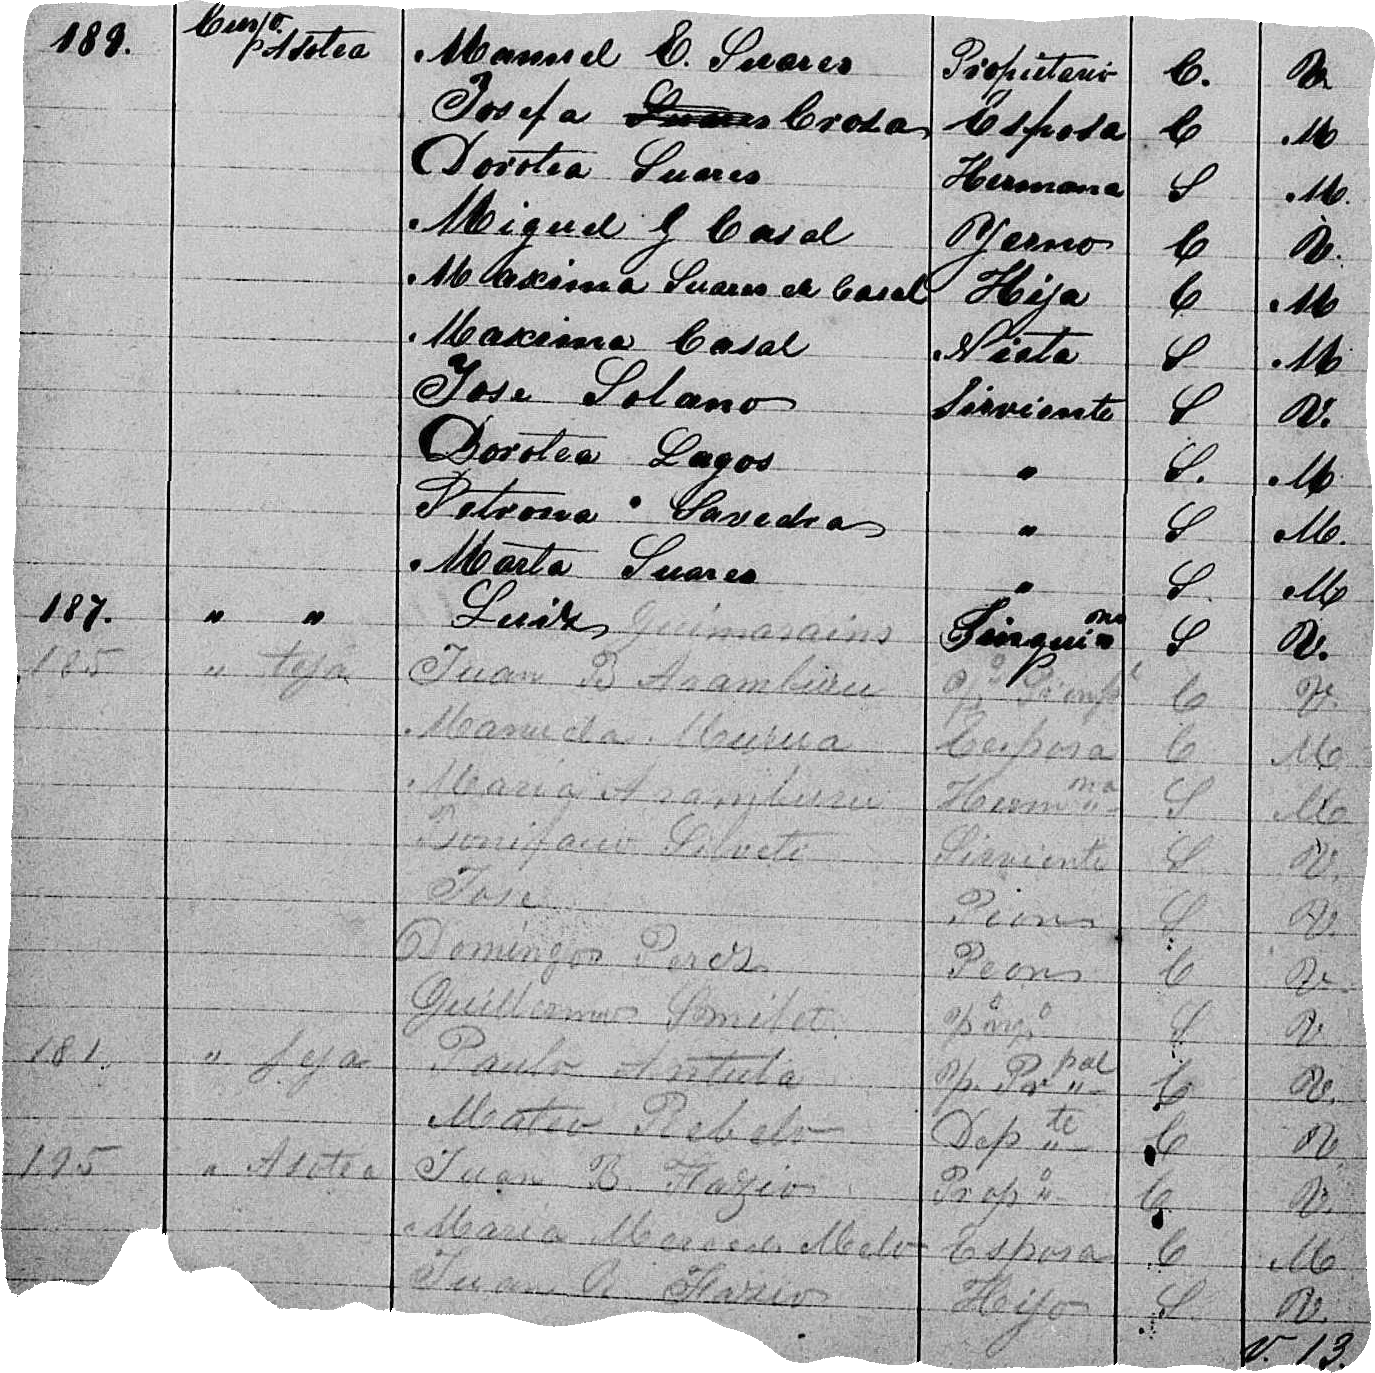 189. Cuerpo. Asotea Manuel E. Suares Propietario C. V.
Josefa Suares Crosas Esposa C M
Dorotea Suares Hermana S M.
Miguel G Casal Yerno C V.
Maxima Suares de Casal Hija C M
Maxima Casal Nieta S M
Jose Solano Sirviente S V.
Dorotea Lagos " S. M
Petrona Savedra " S M.
Marta Suares " S M
187. " " Luiz Guimarains S V.
185 " teja Juan B Aramburu C V.
Manuela Murua Esposa C M
Maria Aramburu Herm na S M
Bonifacio Silveti Sirviente S V.
Jose Peon S V.
Domingo Perez Peon C V.
Guillermo S V
181. " teja Paulo Antula C V.
Mateo Rebelo Dep te C V.
195 " Asotea Juan B. Flazio Prop o C V.
Maria Melo Esposa C M
Juan Flazio Hijo S V.
V. 13.